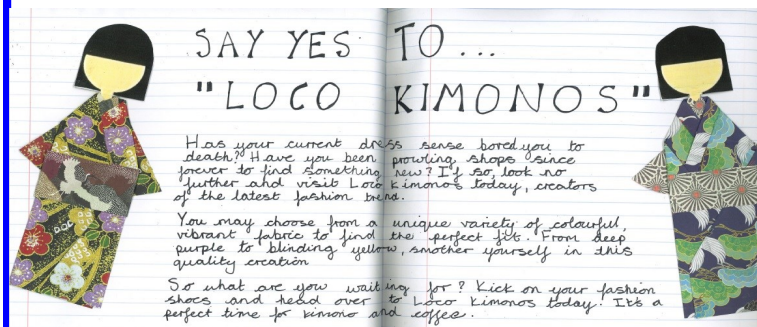 SAY YES TO...
"LOCO KIMONOS"
Has your current dress sense bored you to
death? Have you been prowling shops since
forever to find something new? If so, look no
further and visit Loco Kimonos today, creators
of the latest fashion trend.
You may choose from a unique variety of colourful,
vibrant fabric to find the perfect fit. From deep
purple to blinding yellow, smother yourself in this
quality creation
So what are you waiting for? Kick on your fashion
shoes and head over to Loco Kimonos today! It's a
perfect time for kimono and coffee.